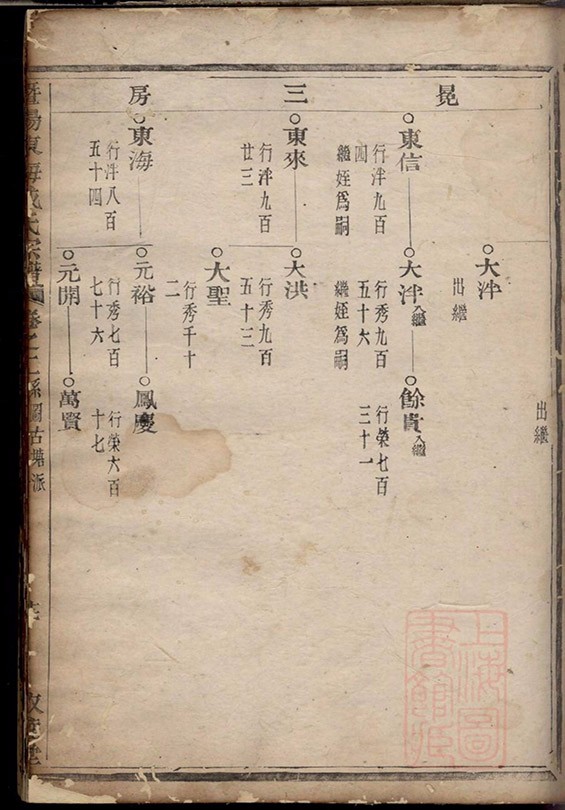 昆三房
出繼
大泮
出繼
東信
行泮九百
四
繼姪爲嗣
大泮入繼
行秀九百
五十六
繼姪爲嗣
餘貴入繼
行榮七百
三十一
東來
行泮九百
廿三
大洪
行秀九百
五十三
大聖
行秀千十
二
東海
行泮八百
五十四
元裕
行秀七百
七十六
鳳慶
行榮六百
十七
元開
萬賢
暨陽東海 氏宗譜 卷之二系圖古塘派
上海圖書館藏